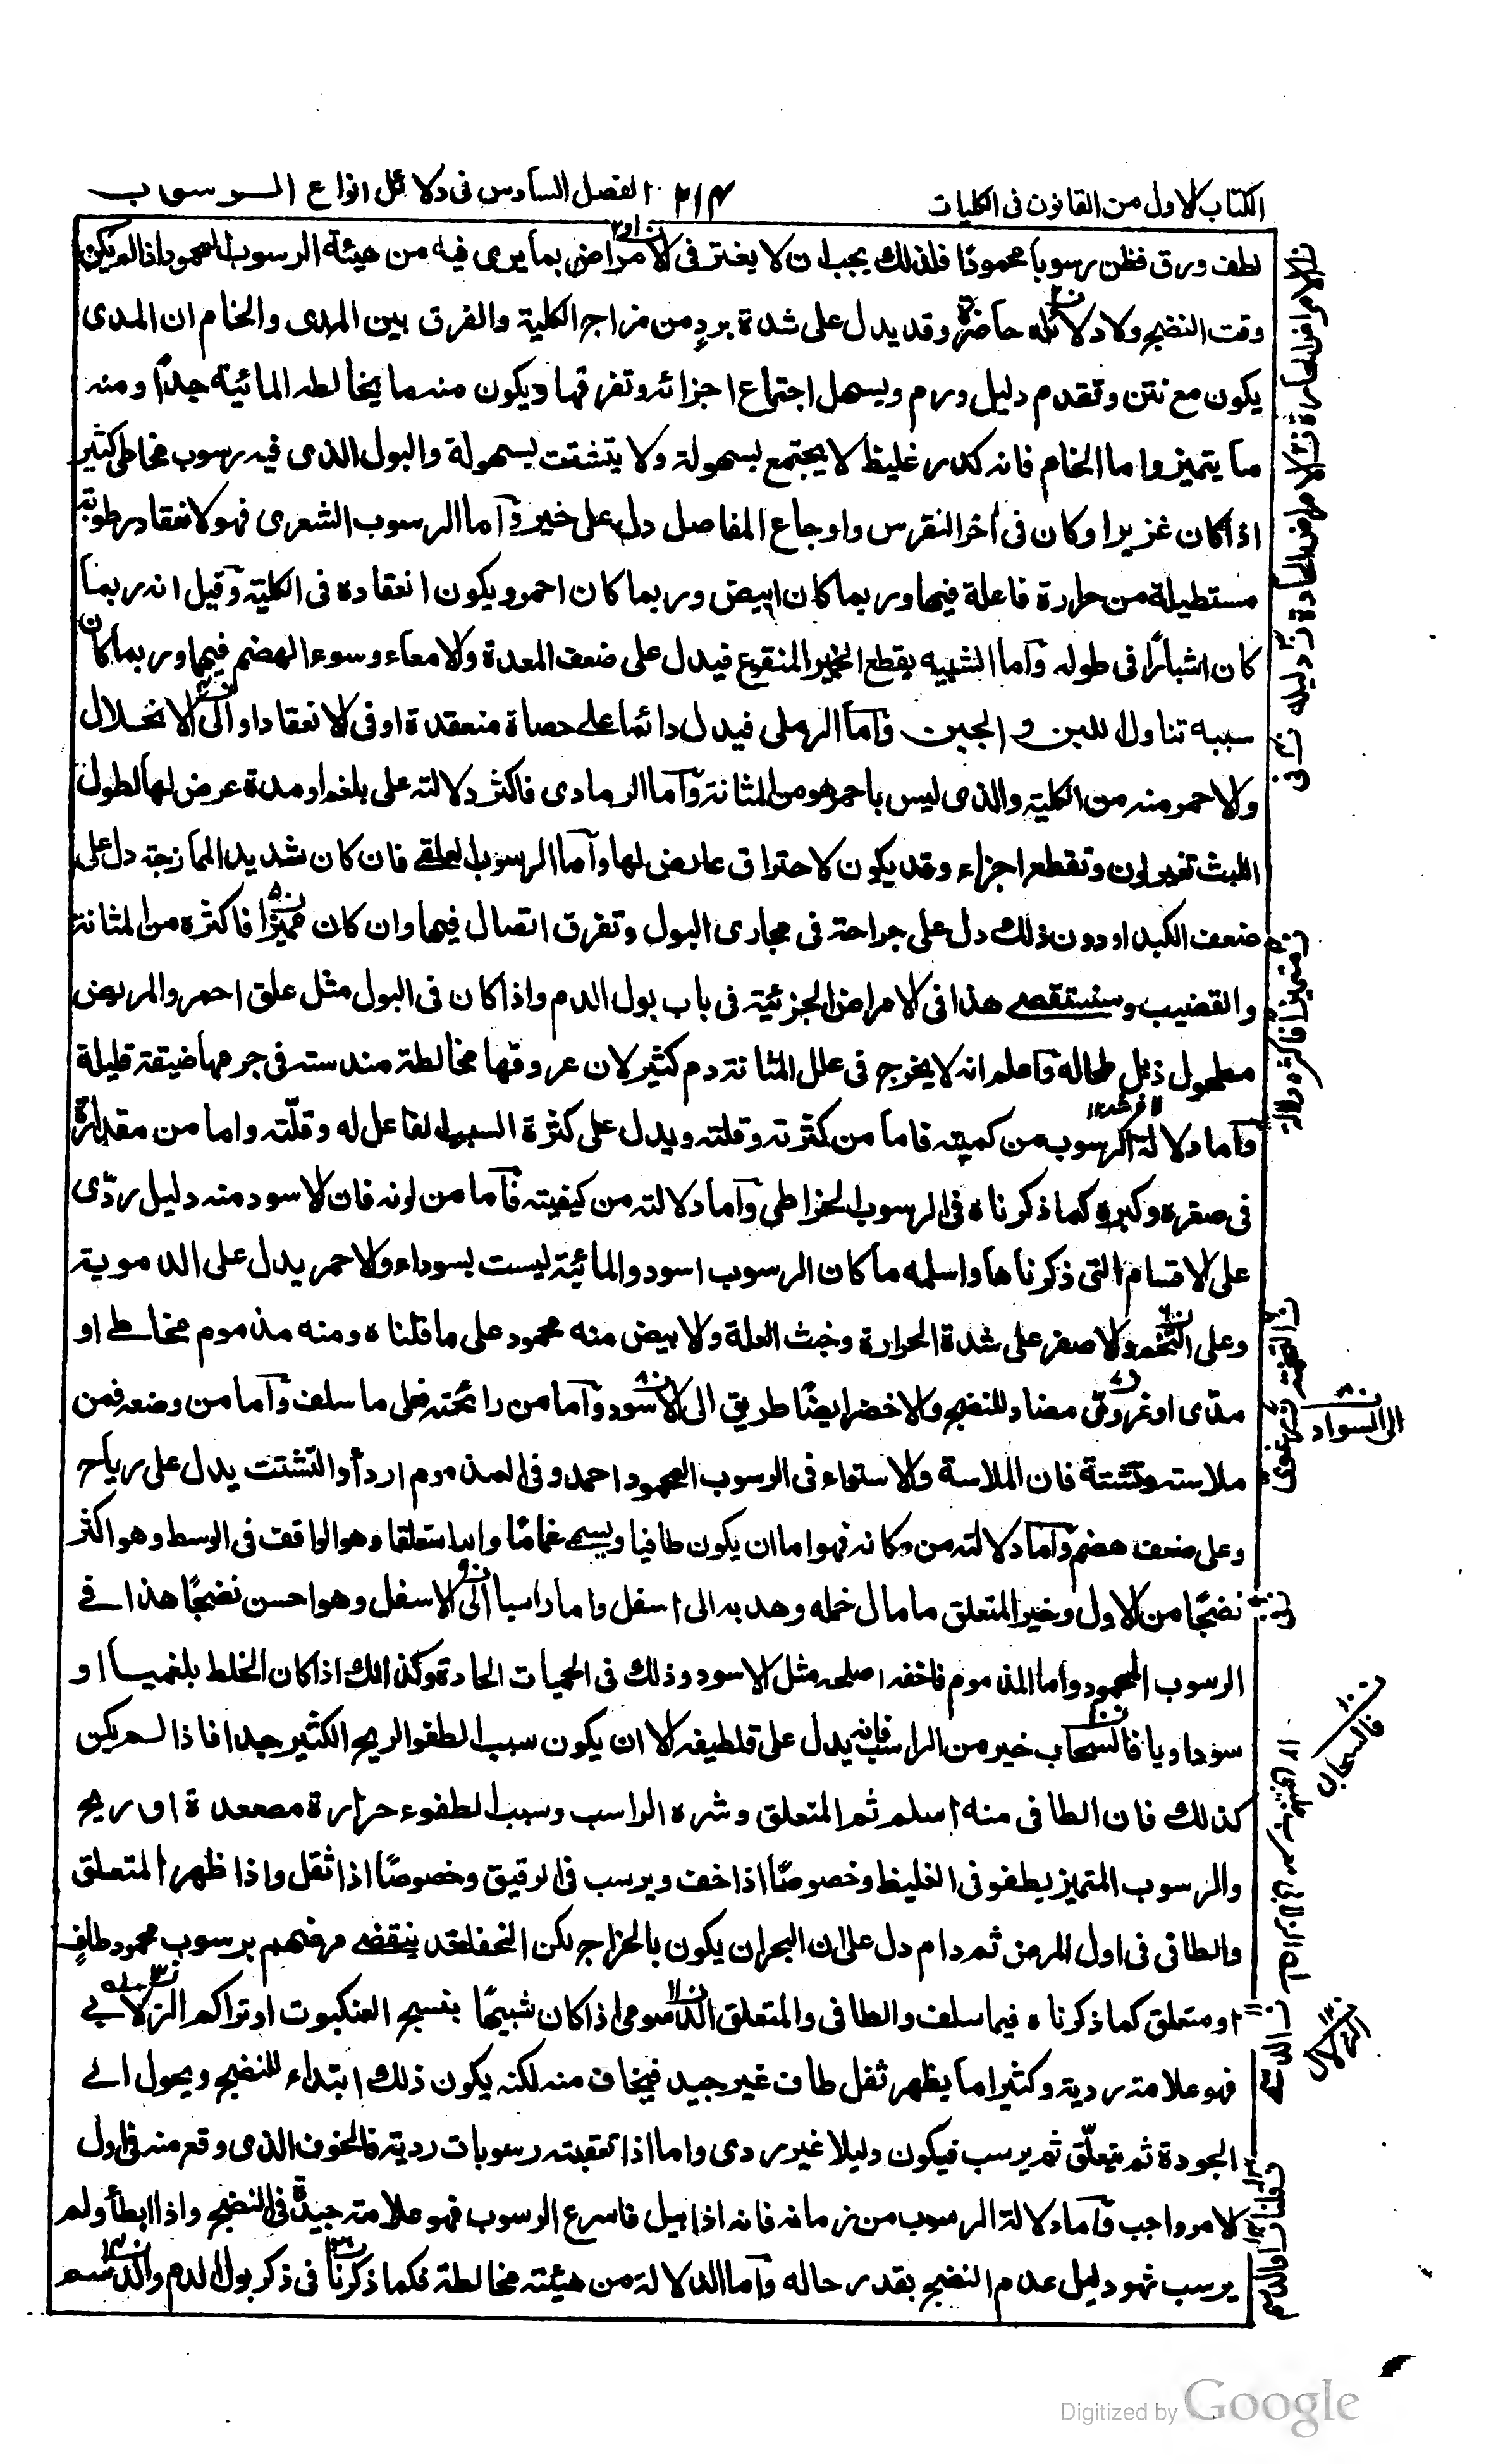 الكتاب الاول من القانون فى الكليات
٢١٤
الفصل السادس فى دلائل انواع الرسوب
لطف ورق فظن رسوبا محمودًا فلذلك يجب ان لا يغتر فى الامراض بما يرى فيه من هيئة الرسوب المحمود اذا لم يكن
وقت النضج ولا دلائله حاضرة وقد يدل على شدة بردٍ من مزاج الكلية والفرق بين المدى والخام ان المدى
يكون مع نتن وتقدم دليل ورم ويسهل اجتماع اجزائه وتفرقها ويكون منه ما يخالطه المائية جدًا ومنه
ما يتميز واما الخام فانه كدر غليظ لا يجتمع بسهولة ولا يتشتت بسهولة والبول الذى فيه رسوب مخاطى كثير
اذا كان غزيرا وكان فى اخر النقرس واوجاع المفاصل دل على خير وآما الرسوب الشعرى فهو لانعقاد رطوبة
مستطيلة من حرارة فاعلة فيها وربما كان ابيض وربما كان احمر ويكون انعقاده فى الكلية وقيل انه ربما
كان اشبارًا فى طوله وآما الشبيه بقطع الخمير المنقوع فيدل على ضعف المعدة والامعاء وسوء الهضم فيها وربما كان
سببه تناول اللبن و الجبن وآما الرملى فيدل دائما على حصاة منعقدة او فى الانعقاد او الى الانحلال
والاحمر منه من الكلية والذى ليس باحمر هو من المثانة وآما الرمادى فاكثر دلالته على بلغم او مدة عرض لها لطول
اللبث تغير لون وتقطع اجزاء وقد يكون لاحتراق عارض لها وآما الرسوب العلقى فان كان شديد الممازجة دل على
ضعف الكبد او دون ذلك دل على جراحة فى مجارى البول وتفرق اتصال فيها وان كان مميزا فاكثره من المثانة
والقضيب وسنستقصى هذا فى الامراض الجزئية فى باب بول الدم واذا كان فى البول مثل علق احمر والمريض
مطحول ذبل طحاله وآعلم انه لا يخرج فى علل المثانة دم كثير لان عروقها مخالطة مندسته فى جرمها ضيقة قليلة
وآما دلالة الرسوب من كميته فاما من كثرته وقلته ويدل على كثرة السبب الفاعل له وقلّته واما من مقداره
فى صغره وكبره كما ذكرناه فى الرسوب الخراطى وآما دلالته من كيفيته فآما من لونه فان الاسود منه دليل ردّى
على الاقسام التى ذكرناها واسلمه ما كان الرسوب اسود والمائية ليست بسوداء والاحمر يدل على الدموية
وعلى التخم والاصفر على شدة الحرارة وخبث العلة والابيض منه محمود على ما قلناه ومنه مذموم مخاطى او
مدّى او غروىّ مضاد للنضج والاخضر ايضًا طريق الى الاسود وآما من رائحته فعلى ما سلف وآما من وضعه فمن
ملاسته وتشتته فان الملاسة والاستواء فى الرسوب المحمود احمد وفى المذموم اردأ والتشتت يدل على رياح
وعلى ضعف هضم وآما دلالته من مكانه فهو اما ان يكون طافيا ويسمى غماما واما متعلقا وهو الواقف فى الوسط وهو اكثر
نضجًا من الاول وخير المتعلق ما مال خمله وهدبه الى اسفل واما راسبا الى الاسفل وهو احسن نضجًا هذا فى
الرسوب المحمود واما المذموم فاخفه اصلحه مثل الاسود وذلك فى الحميات الحادة وكذلك اذا كان الخلط بلغميا او
سوداويا فالسحاب خير من الراسب فانه يدل على تلطيفه الا ان يكون سبب الطفو الريح الكثير جدا فاذا لم يكن
كذلك فان الطافى منه اسلم ثم المتعلق وشره الراسب وسبب الطفوء حرارة مصعدة او ريح
والرسوب المتميز يطفو فى الغليظ وخصوصًا اذا خف ويرسب فى الرقيق وخصوصًا اذا ثقل واذا ظهر المتعلق
والطافى فى اول المرض ثم دام دل على ان البحران يكون بالخراج لكن النحفا قد ينقضى مرضهم برسوب محمود طافٍ
او متعلق كما ذكرناه فيما سلف والطافى والمتعلق الدسومى اذا كان شبيهًا بنسج العنكبوت او تراكم الزلابى
فهو علامة ردية وكثيرا ما يظهر ثفل طاف غير جيد فيخاف منه لكنه يكون ذلك ابتداء للنضج ويحول الى
الجودة ثم يتعلّق ثم يرسب فيكون دليلا غير ردى واما اذا تعقبته رسوبات ردية فالخوف الذى وقع منه فى اول
الامر واجب وآما دلالة الرسوب من زمانه فانه اذا بيل فاسرع الرسوب فهو علامة جيدة فى النضج واذا ابطأ ولم
يرسب فهو دليل عدم النضج بقدر حاله وآما الدلالة من هيئته مخالطة فكما ذكرنا فى ذكر بول الدم والدسم
الى السواد
فالسحاب
الزلال
Digitized by Google